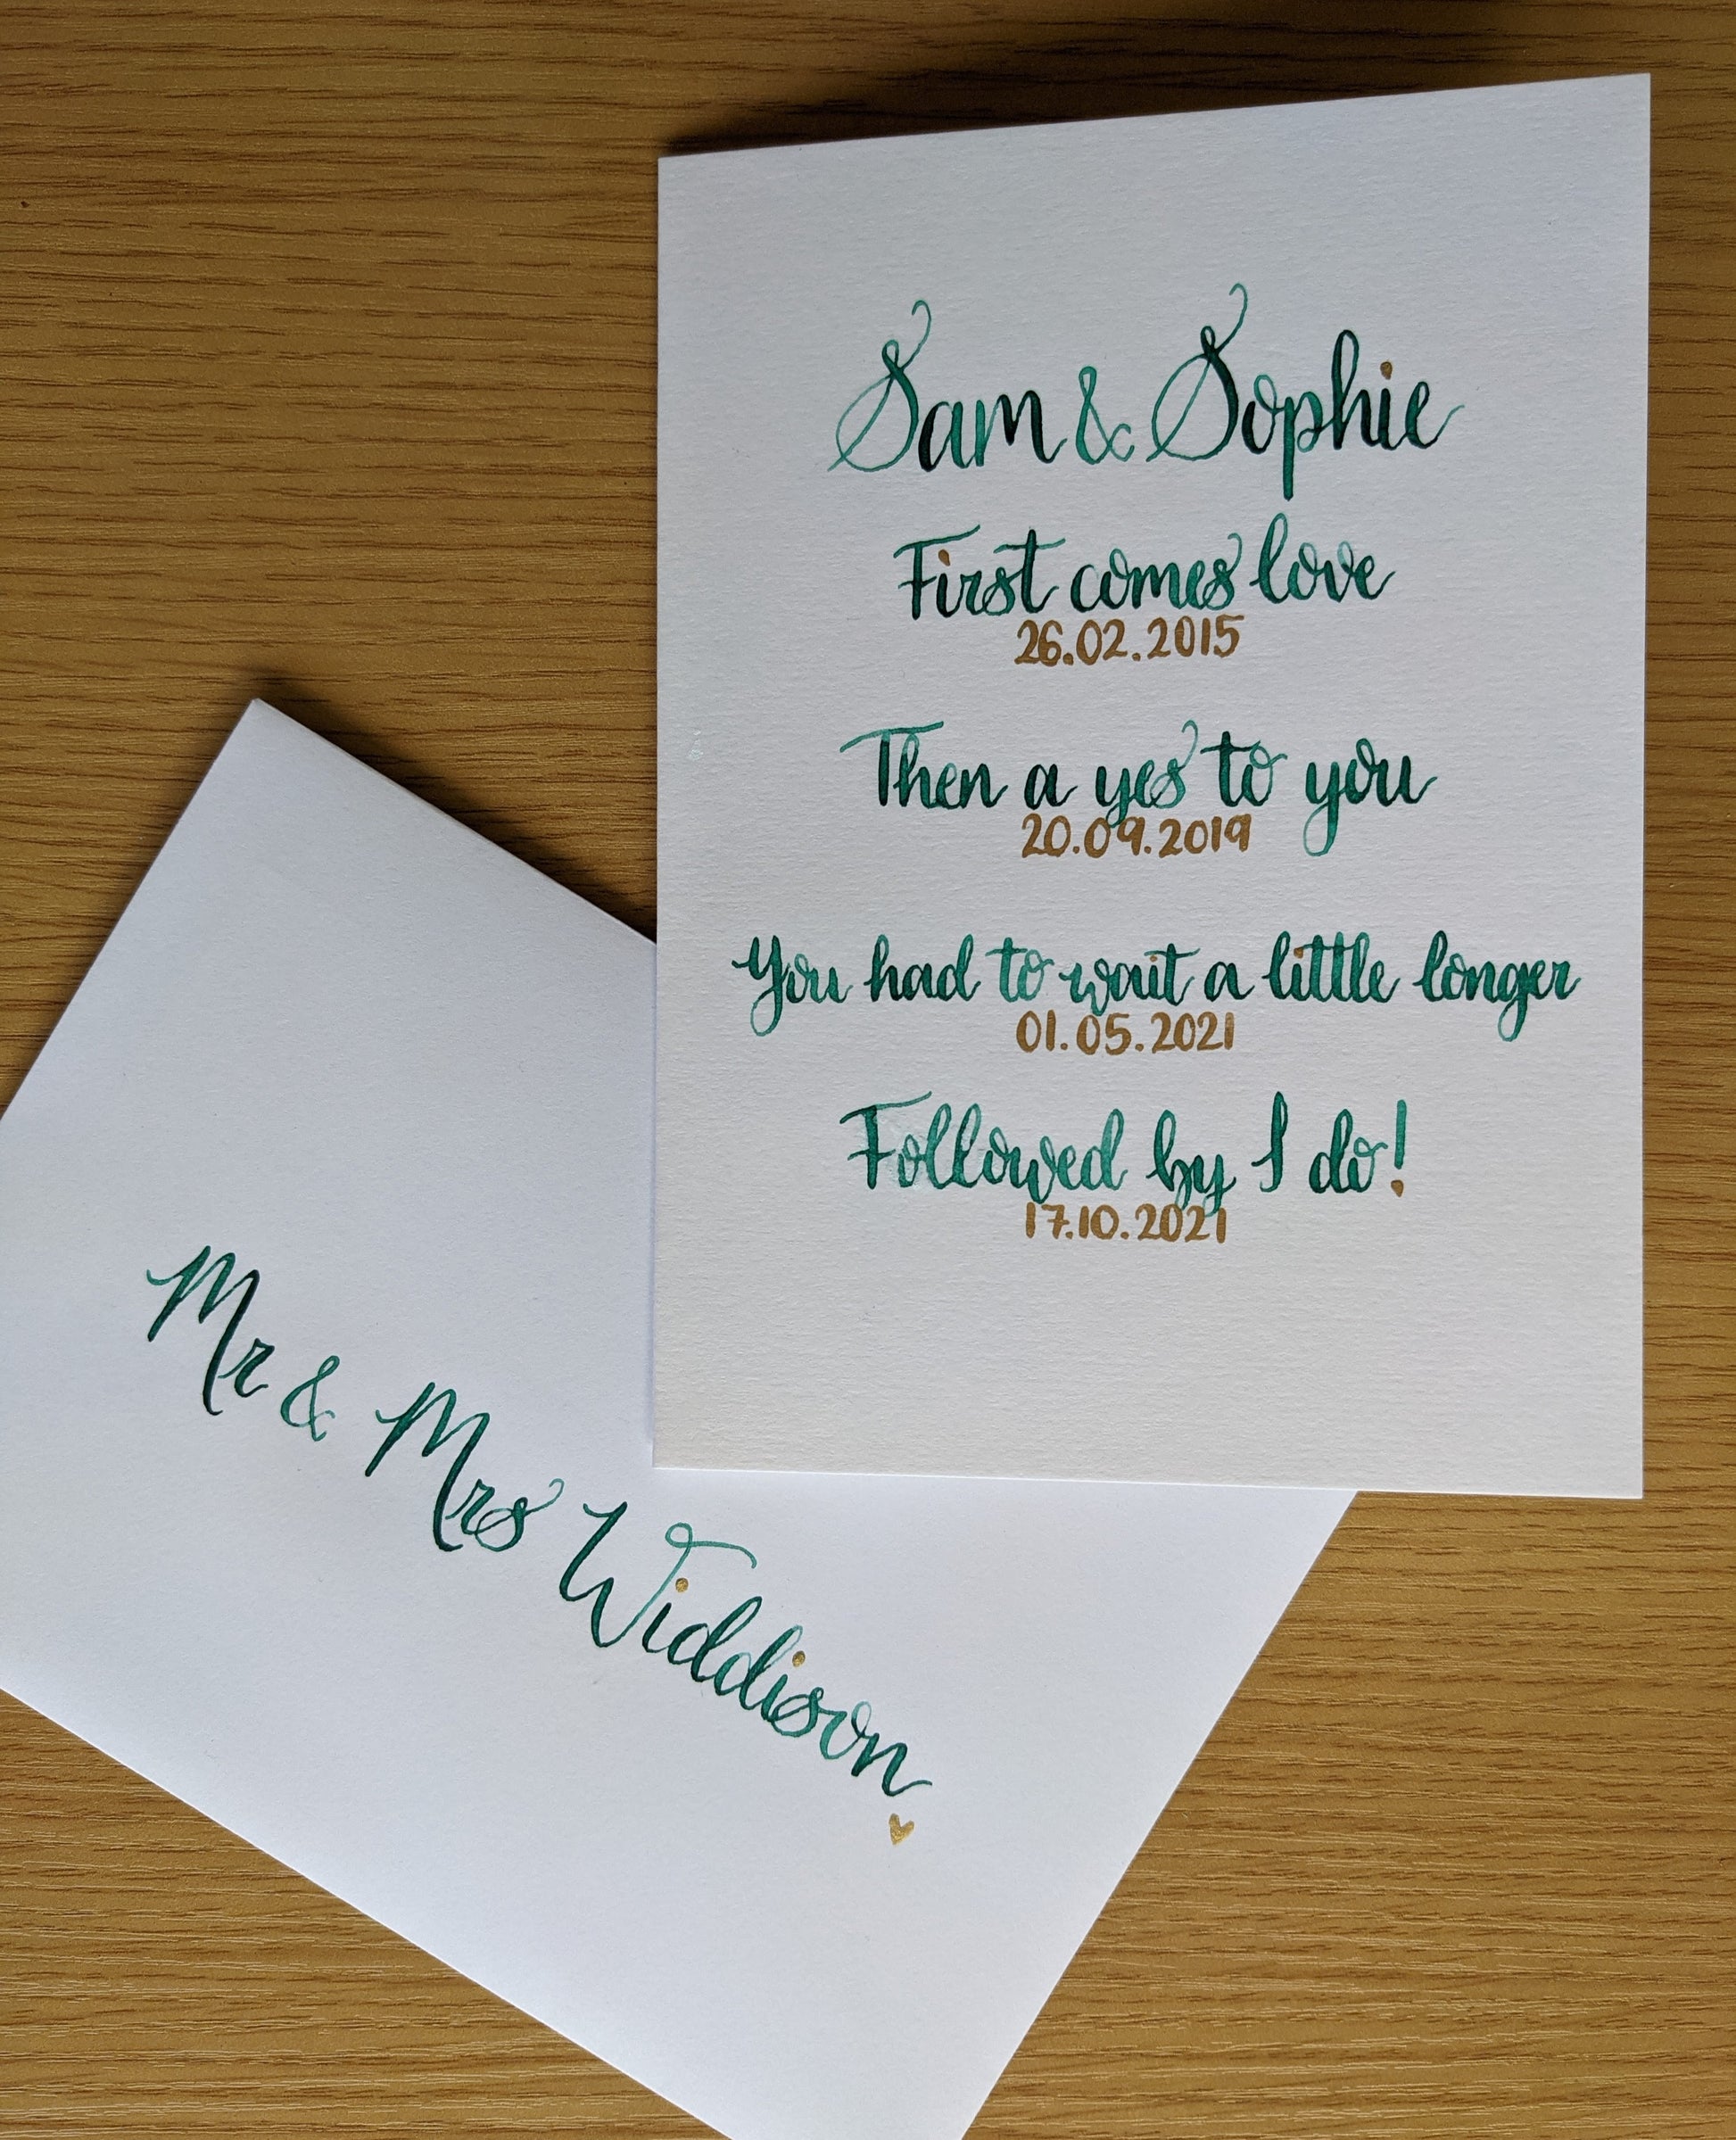 Sam & Sophie
First comes love
26.02.2015
Then a yes to you
20.09.2019
You had to wait a little longer
01.05.2021
Followed by I do!
17.10.2021
Mr & Mrs Widdison